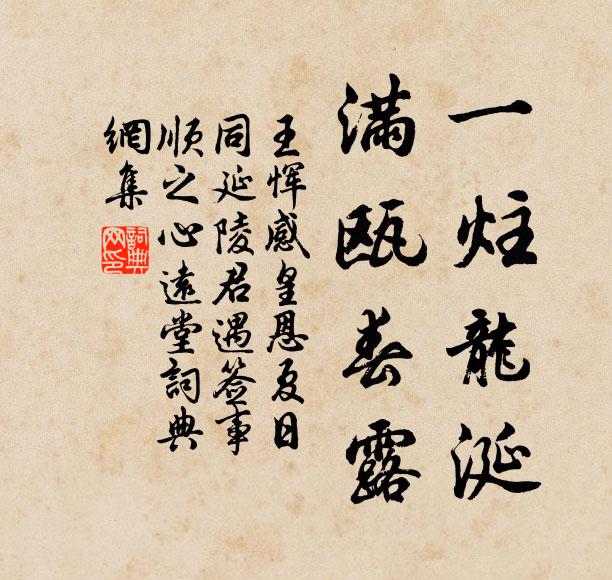 一炷龍涎
滿瓯春露
王惲感皇恩夏日
同延陵君遇签事
順之心遠堂詞典
網集
詞典網印